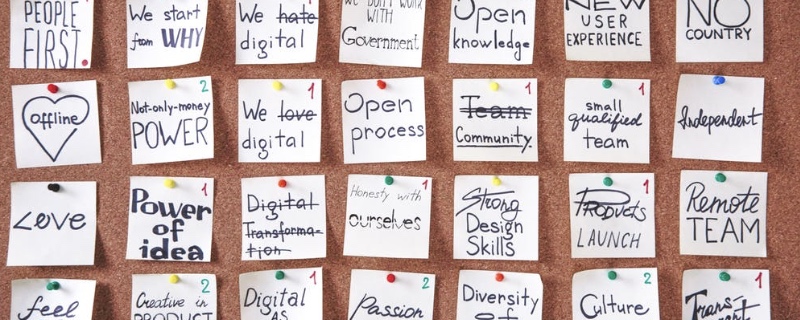 PEOPLE
FIRST.
We start
from WHY
We hate
digital
We don't work
WITH
Government
Open
knowledge
NEW
USER
EXPERIENCE
NO
COUNTRY
offline
2
Not-only-money
POWER
1
We love
digital
Open
process
1
Team
Community.
1
small
qualified
team
Independent
Love
1
Power
of
idea
Digital
Transforma-
tion
1
Honesty with
ourselves
Strong
Design
Skills
1
Products
LAUNCH
Remote
TEAM
feel
2
Creative in
PRODUCT
1
Digital
AS
2
Passion
Diversity
of
2
Culture
1
Trans-